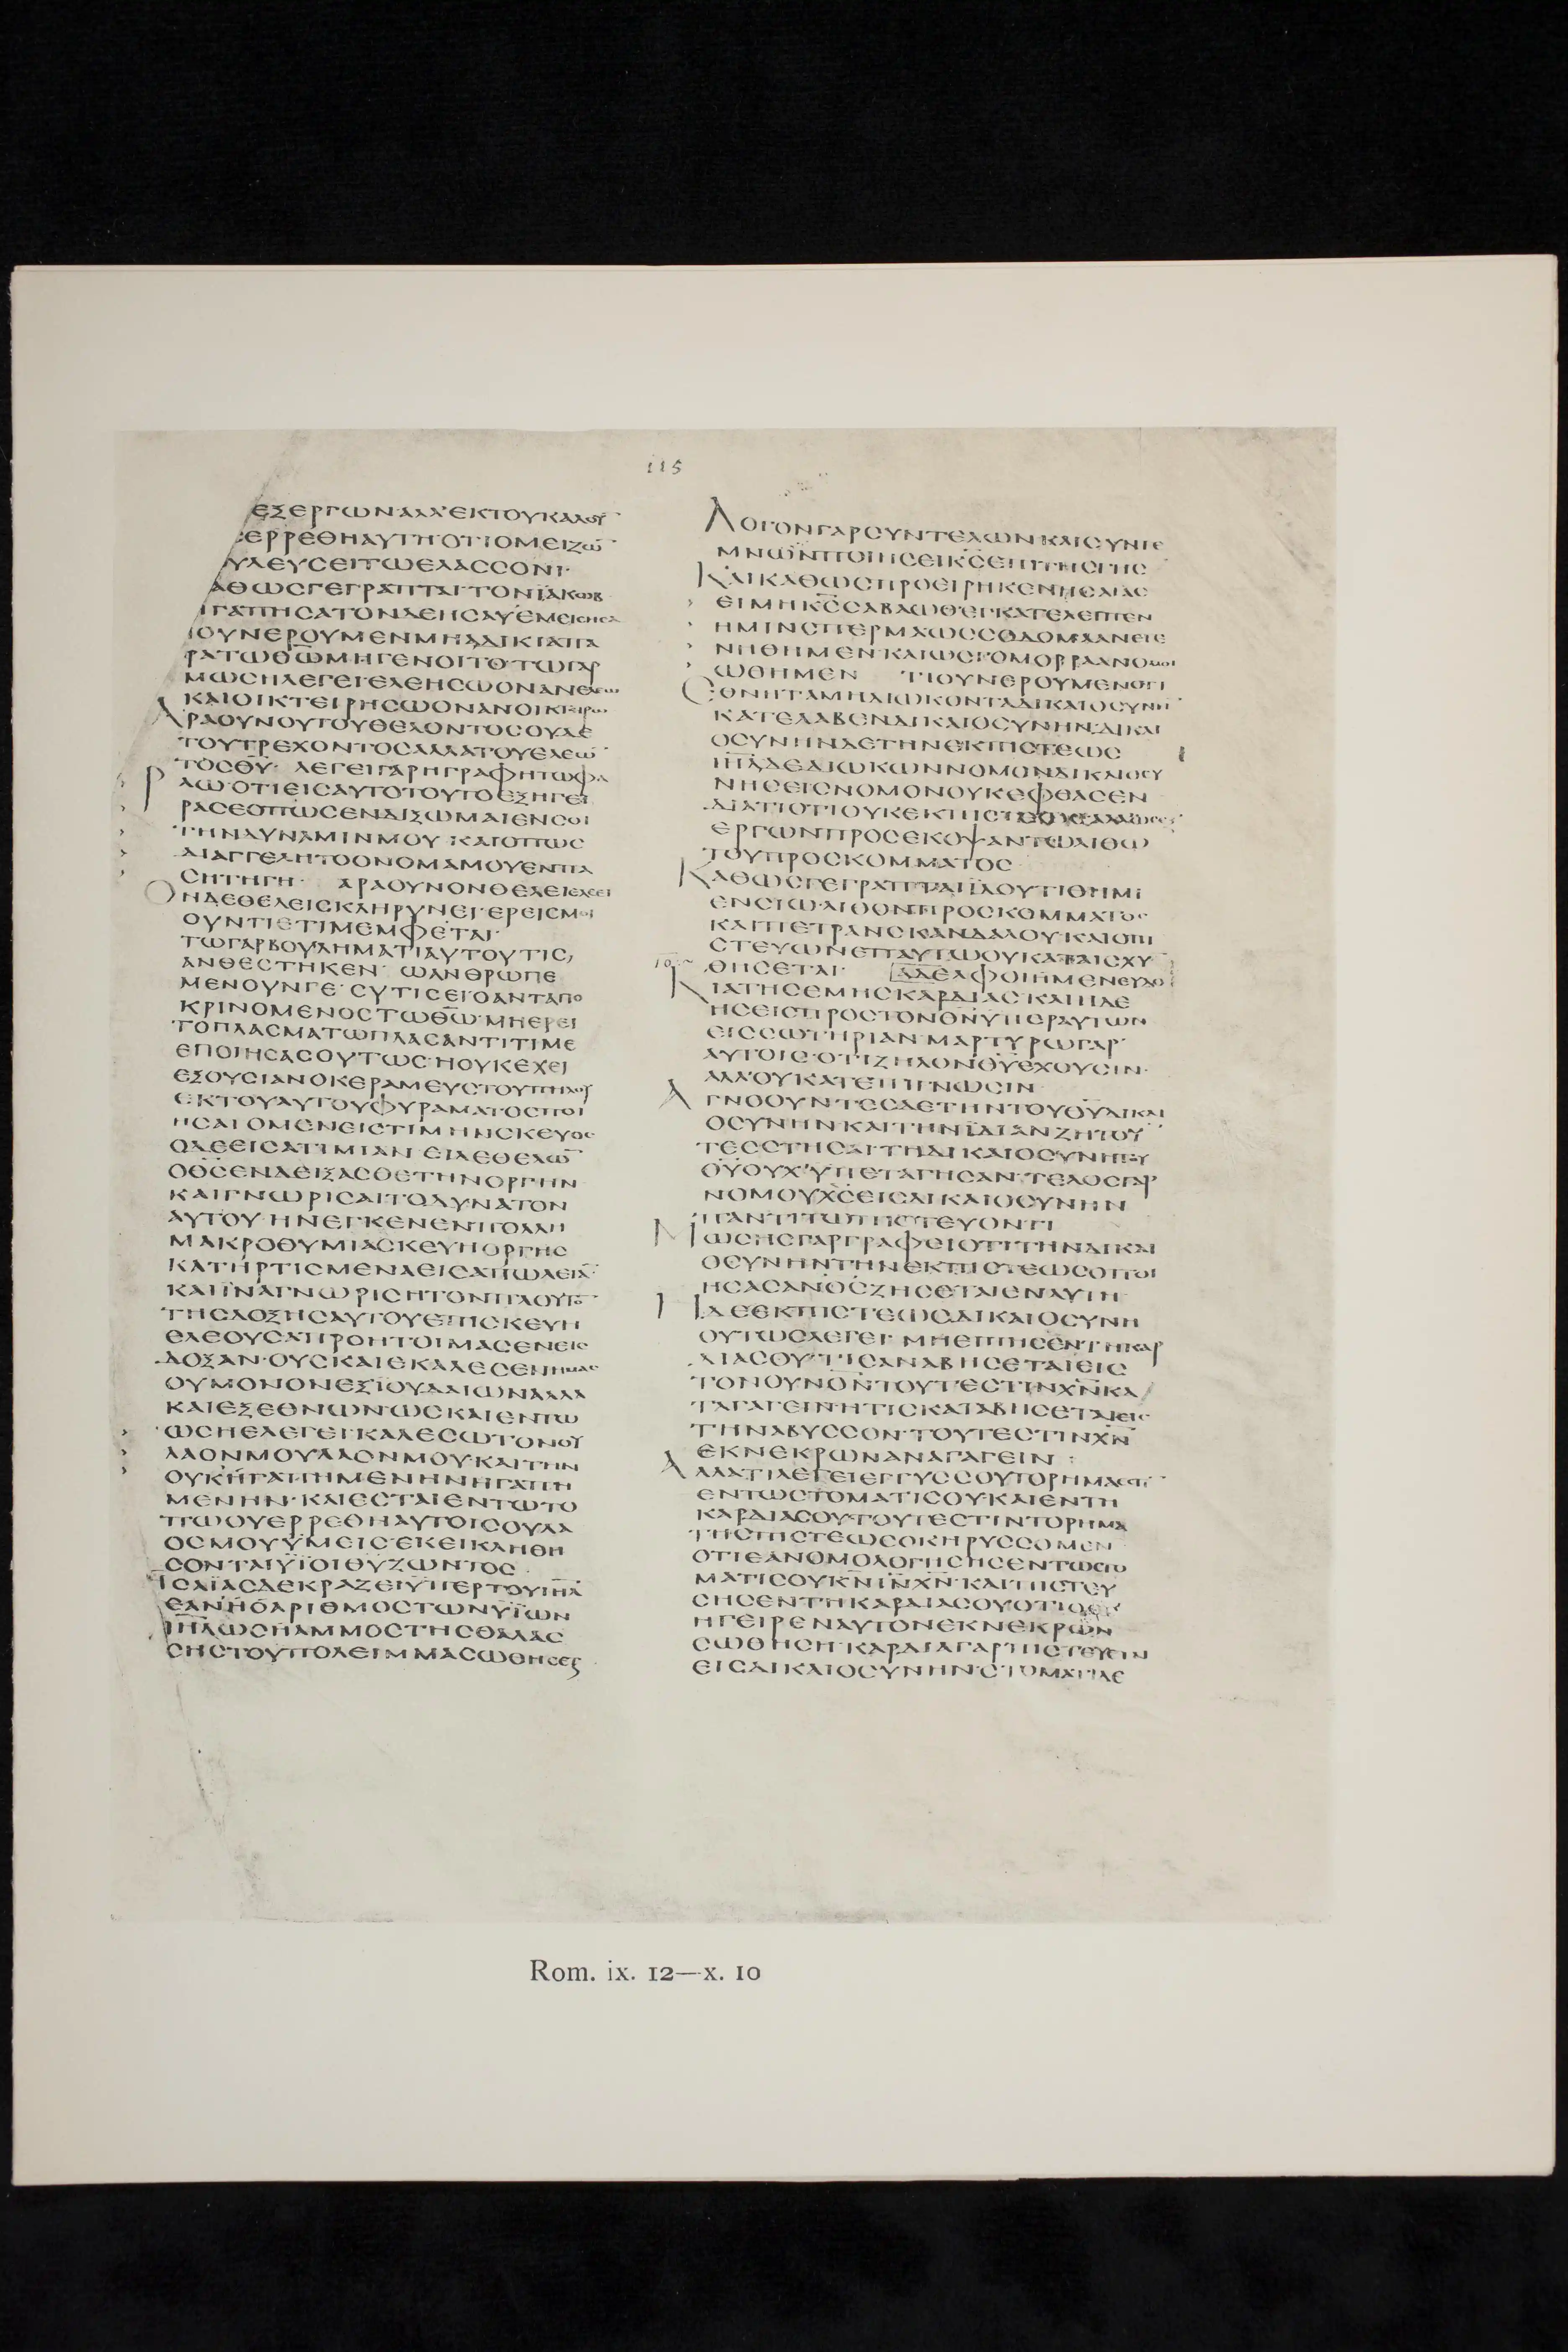 115
ΕΞΕΡΓΩΝ·ΑΛΛ'ΕΚΤΟΥΚΑΛΟΥ
ΕΡΡΕΘΗΑΥΤΗ·ΟΤΙΟΜΕΙΖΩ̅
ΥΛΕΥΣΕΙΤΩΕΛΑΣΣΟΝΙ·
ΑΘΩΣΓΕΓΡΑΠΤΑΙ·ΤΟΝΪΑΚΩΒ
ΓΑΠΗΣΑΤΟΝΔΕΗΣΑΥΕΜΕΙΣΗΣΑ
ΙΟΥΝΕΡΟΥΜΕΝΜΗΑΔΙΚΙΑΠΑ
ΡΑΤΩΘ̅Ω̅ΜΗΓΕΝΟΙΤΟ·ΤΩΓΑΡ
ΜΩΣΗΛΕΓΕΙ·ΕΛΕΗΣΩΟΝΑΝΕΛΕΩ
ΚΑΙΟΙΚΤΕΙΡΗΣΩΟΝΑΝΟΙΚΤΕΙΡΩ
ΑΡΑΟΥΝΟΥΤΟΥΘΕΛΟΝΤΟΣΟΥΔΕ
ΤΟΥΤΡΕΧΟΝΤΟΣΑΛΛΑΤΟΥΕΛΕΩ̅
ΤΟΣΘ̅Υ̅· ΛΕΓΕΙΓΑΡΗΓΡΑΦΗΤΩΦΑ
ΡΑΩ·ΟΤΙΕΙΣΑΥΤΟΤΟΥΤΟΕΞΗΓΕΙ
ΡΑΣΕΟΠΩΣΕΝΔΙΞΩΜΑΙΕΝΣΟΙ
ΤΗΝΔΥΝΑΜΙΝΜΟΥ·ΚΑΙΟΠΩΣ
ΔΙΑΓΓΕΛΗΤΟΟΝΟΜΑΜΟΥΕΝΠΑ
ΣΗΤΗΓΗ· ΑΡΑΟΥΝΟΝΘΕΛΕΙΕΛΕΕΙ
ΟΝΔΕΘΕΛΕΙΣΚΛΗΡΥΝΕΙ·ΕΡΕΙΣΜΟΙ
ΟΥΝΤΙΕΤΙΜΕΜΦΕΤΑΙ·
ΤΩΓΑΡΒΟΥΛΗΜΑΤΙΑΥΤΟΥΤΙΣ
ΑΝΘΕΣΤΗΚΕΝ· ΩΑΝΘΡΩΠΕ
ΜΕΝΟΥΝΓΕ·ΣΥΤΙΣΕΙΟΑΝΤΑΠΟ
ΚΡΙΝΟΜΕΝΟΣΤΩΘ̅Ω̅·ΜΗΕΡΕΙ
ΤΟΠΛΑΣΜΑΤΩΠΛΑΣΑΝΤΙΤΙΜΕ
ΕΠΟΙΗΣΑΣΟΥΤΩΣ·ΗΟΥΚΕΧΕΙ
ΕΞΟΥΣΙΑΝΟΚΕΡΑΜΕΥΣΤΟΥΠΗΛΟΥ
ΕΚΤΟΥΑΥΤΟΥΦΥΡΑΜΑΤΟΣΠΟΙ
ΗΣΑΙΟΜΕΝΕΙΣΤΙΜΗΝΣΚΕΥΟΣ
ΟΔΕΕΙΣΑΤΙΜΙΑΝ ΕΙΔΕΘΕΛΩ̅
ΟΘ̅Σ̅ΕΝΔΕΙΞΑΣΘΕΤΗΝΟΡΓΗΝ
ΚΑΙΓΝΩΡΙΣΑΙΤΟΔΥΝΑΤΟΝ
ΑΥΤΟΥ·ΗΝΕΓΚΕΝΕΝΠΟΛΛΗ
ΜΑΚΡΟΘΥΜΙΑΣΚΕΥΗΟΡΓΗΣ
ΚΑΤΗΡΤΙΣΜΕΝΑΕΙΣΑΠΩΛΕΙΑ̅·
ΚΑΙΪΝΑΓΝΩΡΙΣΗΤΟΝΠΛΟΥΤΟ̅
ΤΗΣΔΟΞΗΣΑΥΤΟΥΕΠΙΣΚΕΥΗ
ΕΛΕΟΥΣΑΠΡΟΗΤΟΙΜΑΣΕΝΕΙΣ
ΔΟΞΑΝ·ΟΥΣΚΑΙΕΚΑΛΕΣΕΝΗΜΑΣ
ΟΥΜΟΝΟΝΕΞΪΟΥΔΑΙΩΝΑΛΛΑ
ΚΑΙΕΞΕΘΝΩΝ·ΩΣΚΑΙΕΝΤΩ
ΩΣΗΕΛΕΓΕΙ·ΚΑΛΕΣΩΤΟΝΟΥ
ΛΑΟΝΜΟΥΛΑΟΝΜΟΥΚΑΙΤΗΝ
ΟΥΚΗΓΑΠΗΜΕΝΗΝΗΓΑΠΗ
ΜΕΝΗΝ·ΚΑΙΕΣΤΑΙΕΝΤΩΤΟ
ΠΩΟΥΕΡΡΕΘΗΑΥΤΟΙΣΟΥΛΑ
ΟΣΜΟΥΫΜΕΙΣ·ΕΚΕΙΚΛΗΘΗ
ΣΟΝΤΑΙΫΙΟΙΘ̅Υ̅ΖΩΝΤΟΣ·
ΗΣΑΪΑΣΔΕΚΡΑΖΕΙΫΠΕΡΤΟΥΙ̅Η̅Λ̅
ΕΑΝΗΟΑΡΙΘΜΟΣΤΩΝΫΪΩΝ
Ι̅Η̅Λ̅ΩΣΗΑΜΜΟΣΤΗΣΘΑΛΑΣ
ΣΗΣΤΟΥΠΟΛΕΙΜΜΑΣΩΘΗΣΕΤ
ΛΟΓΟΝΓΑΡΣΥΝΤΕΛΩΝΚΑΙΣΥΝΤΕ
ΜΝΩΝΠΟΙΗΣΕΙΚ̅Σ̅ΕΠΙΤΗΣΓΗΣ
ΚΑΙΚΑΘΩΣΠΡΟΕΙΡΗΚΕΝΗΣΑΙΑΣ
ΕΙΜΗΚ̅Σ̅ΣΑΒΑΩΘ·ΕΓΚΑΤΕΛΕΠΤΕΝ
ΗΜΙΝΣΠΕΡΜΑΩΣΣΟΔΟΜΑΑΝΕΓΕ
ΝΗΘΗΜΕΝ·ΚΑΙΩΣΓΟΜΟΡΡΑΑΝΟΜΟΙ
ΩΘΗΜΕΝ ΤΙΟΥΝΕΡΟΥΜΕΝΟΤΙ
ΕΘΝΗΤΑΜΗΔΙΩΚΟΝΤΑΔΙΚΑΙΟΣΥΝΗ
ΚΑΤΕΛΑΒΕΝΔΙΚΑΙΟΣΥΝΗΝ·ΔΙΚΑΙ
ΟΣΥΝΗΝΔΕΤΗΝΕΚΠΙΣΤΕΩΣ
Ι̅Η̅Λ̅ΔΕΔΙΩΚΩΝΝΟΜΟΝΔΙΚΑΙΟΣΥ
ΝΗΣΕΙΣΝΟΜΟΝΟΥΚΕΦΘΑΣΕΝ
ΔΙΑΤΙΟΤΙΟΥΚΕΚΠΙΣΤΕΩΣΑΛΛΩΣΕΞ
ΕΡΓΩΝΠΡΟΣΕΚΟΨΑΝΤΩΛΙΘΩ
ΤΟΥΠΡΟΣΚΟΜΜΑΤΟΣ
ΚΑΘΩΣΓΕΓΡΑΠΤΑΙΪΔΟΥΤΙΘΗΜΙ
ΕΝΣΙΩΛΙΘΟΝΠΡΟΣΚΟΜΜΑΤΟΣ·
ΚΑΙΠΕΤΡΑΝΣΚΑΝΔΑΛΟΥ·ΚΑΙΟΠΙ
ΣΤΕΥΩΝΕΠΑΥΤΩΟΥΚΑΤΑΙΣΧΥ
ΘΗΣΕΤΑΙ· ΑΔΕΛΦΟΙΗΜΕΝΕΥΔΟ
ΚΙΑΤΗΣΕΜΗΣΚΑΡΔΙΑΣ·ΚΑΙΗΔΕ
ΗΣΕΙΣΠΡΟΣΤΟΝΘ̅Ν̅ΥΠΕΡΑΥΤΩΝ
ΕΙΣΣΩΤΗΡΙΑΝ·ΜΑΡΤΥΡΩΓΑΡ
ΑΥΤΟΙΣ·ΟΤΙΖΗΛΟΝΘ̅Υ̅ΕΧΟΥΣΙΝ·
ΑΛΛ'ΟΥΚΑΤΕΠΙΓΝΩΣΙΝ
ΑΓΝΟΟΥΝΤΕΣΔΕΤΗΝΤΟΥΘ̅Υ̅ΔΙΚΑΙ
ΟΣΥΝΗΝΚΑΙΤΗΝΪΔΙΑΝΖΗΤΟΥ
ΤΕΣΣΤΗΣΑΙ·ΤΗΔΙΚΑΙΟΣΥΝΗΤΟΥ
Θ̅Υ̅ΟΥΧΫΠΕΤΑΓΗΣΑΝ·ΤΕΛΟΣΓΑΡ
ΝΟΜΟΥΧ̅Σ̅ΕΙΣΔΙΚΑΙΟΣΥΝΗΝ
ΠΑΝΤΙΤΩΠΙΣΤΕΥΟΝΤΙ
ΜΩΣΗΣΓΑΡΓΡΑΦΕΙΟΤΙΤΗΝΔΙΚΑΙ
ΟΣΥΝΗΝΤΗΝΕΚΠΙΣΤΕΩΣΟΠΟΙ
ΗΣΑΣΑΝΟ̅Σ̅ΖΗΣΕΤΑΙΕΝΑΥΤΗ
ΗΔΕΕΚΠΙΣΤΕΩΣΔΙΚΑΙΟΣΥΝΗ
ΟΥΤΩΣΛΕΓΕΙ· ΜΗΕΙΠΗΣΕΝΤΗΚΑΡ
ΔΙΑΣΟΥ·ΤΙΣΑΝΑΒΗΣΕΤΑΙΕΙΣ
ΤΟΝΟΥΝΟ̅Ν̅ΤΟΥΤΕΣΤΙΝΧ̅Ν̅ΚΑ
ΤΑΓΑΓΕΙΝ·ΗΤΙΣΚΑΤΑΒΗΣΕΤΑΙΕΙΣ
ΤΗΝΑΒΥΣΣΟΝ·ΤΟΥΤΕΣΤΙΝΧ̅Ν̅
ΕΚΝΕΚΡΩΝΑΝΑΓΑΓΕΙΝ
ΑΛΛΑΤΙΛΕΓΕΙΕΓΓΥΣΣΟΥΤΟΡΗΜΑΕΣΤΙ
ΕΝΤΩΣΤΟΜΑΤΙΣΟΥΚΑΙΕΝΤΗ
ΚΑΡΔΙΑΣΟΥ·ΤΟΥΤΕΣΤΙΝΤΟΡΗΜΑ
ΤΗΣΠΙΣΤΕΩΣΟΚΗΡΥΣΣΟΜΕΝ
ΟΤΙΕΑΝΟΜΟΛΟΓΗΣΗΣΕΝΤΩΣΤΟ
ΜΑΤΙΣΟΥΚ̅Ν̅Ι̅Ν̅Χ̅Ν̅·ΚΑΙΠΙΣΤΕΥ
ΣΗΣΕΝΤΗΚΑΡΔΙΑΣΟΥΟΤΙΟΘ̅Σ̅
ΗΓΕΙΡΕΝΑΥΤΟΝΕΚΝΕΚΡΩΝ
ΣΩΘΗΣΗ·ΚΑΡΔΙΑΓΑΡΠΙΣΤΕΥΕΤΙΝ
ΕΙΣΔΙΚΑΙΟΣΥΝΗΝ·ΣΤΟΜΑΤΙΔΕ
Rom. ix. 12—x. 10